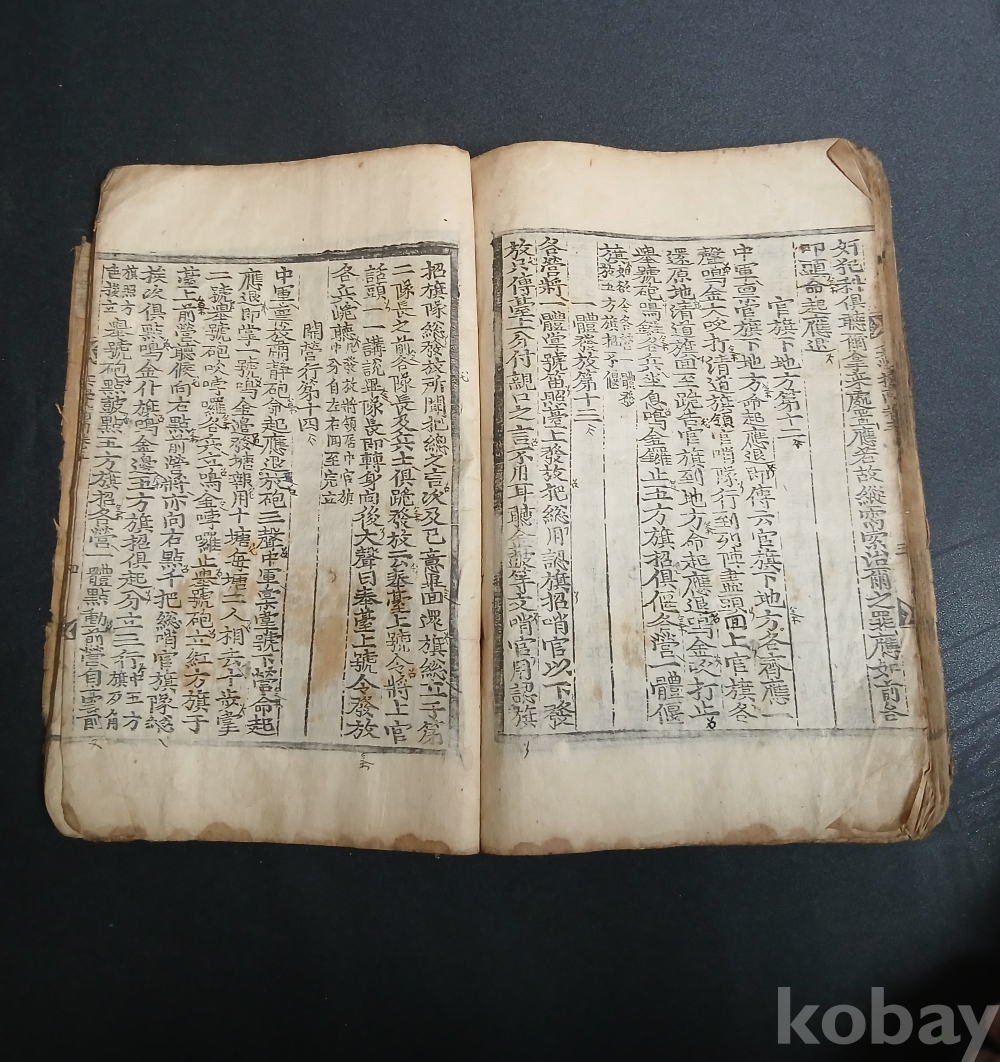 奸犯科俱聽爾全來處置應若故縱需索治爾之罪應如前各
叩頭命起應退
官旗下地方第十二
中軍禀官旗下地方命起應退即傳云官旗下地方各齊應一
聲鳴金大吹打清道旗領官哨隊行到列陣盡頭面上官旗各
還原地清道旗面至跪告官旗到地方命起應退鳴金吹打止
擧號砲鳴鑼各兵坐息鳴金鑼止五方旗招俱偃各營一體偃
旗
一體發放第十三
各營將一體掌號笛照臺上發放把總用認旗招哨官以下發
放只傳臺上分付親口之言不用耳聽金鼓等文哨官用認旗
招旗隊總發放所聞把總之言次及己意畢面還旗總立于第
二隊長之前各隊長及兵士俱跪發放云奉臺上號令將上官
話頭一一講說畢隊長即轉身向後大聲曰奉臺上號令發放
各兵跪聽
發放將領居中官旗
分自左右回至完立
開營行第十四
中軍禀放肅靜砲命起應退放砲三聲中軍禀掌號下營命起
應退即掌一號鳴金邊發塘報用十塘每塘二人相去十步掌
二號擧號砲吹哱囉各兵立鳴金哱囉止擧號砲立紅方旗于
臺上前營最候向右點前營將亦向右點千把總哨官旗隊總
挨次俱點鳴金仆旗鳴金邊五方旗招俱起分立三行
擧號砲點鼓點五方旗招各營一體點動前營自
kobay